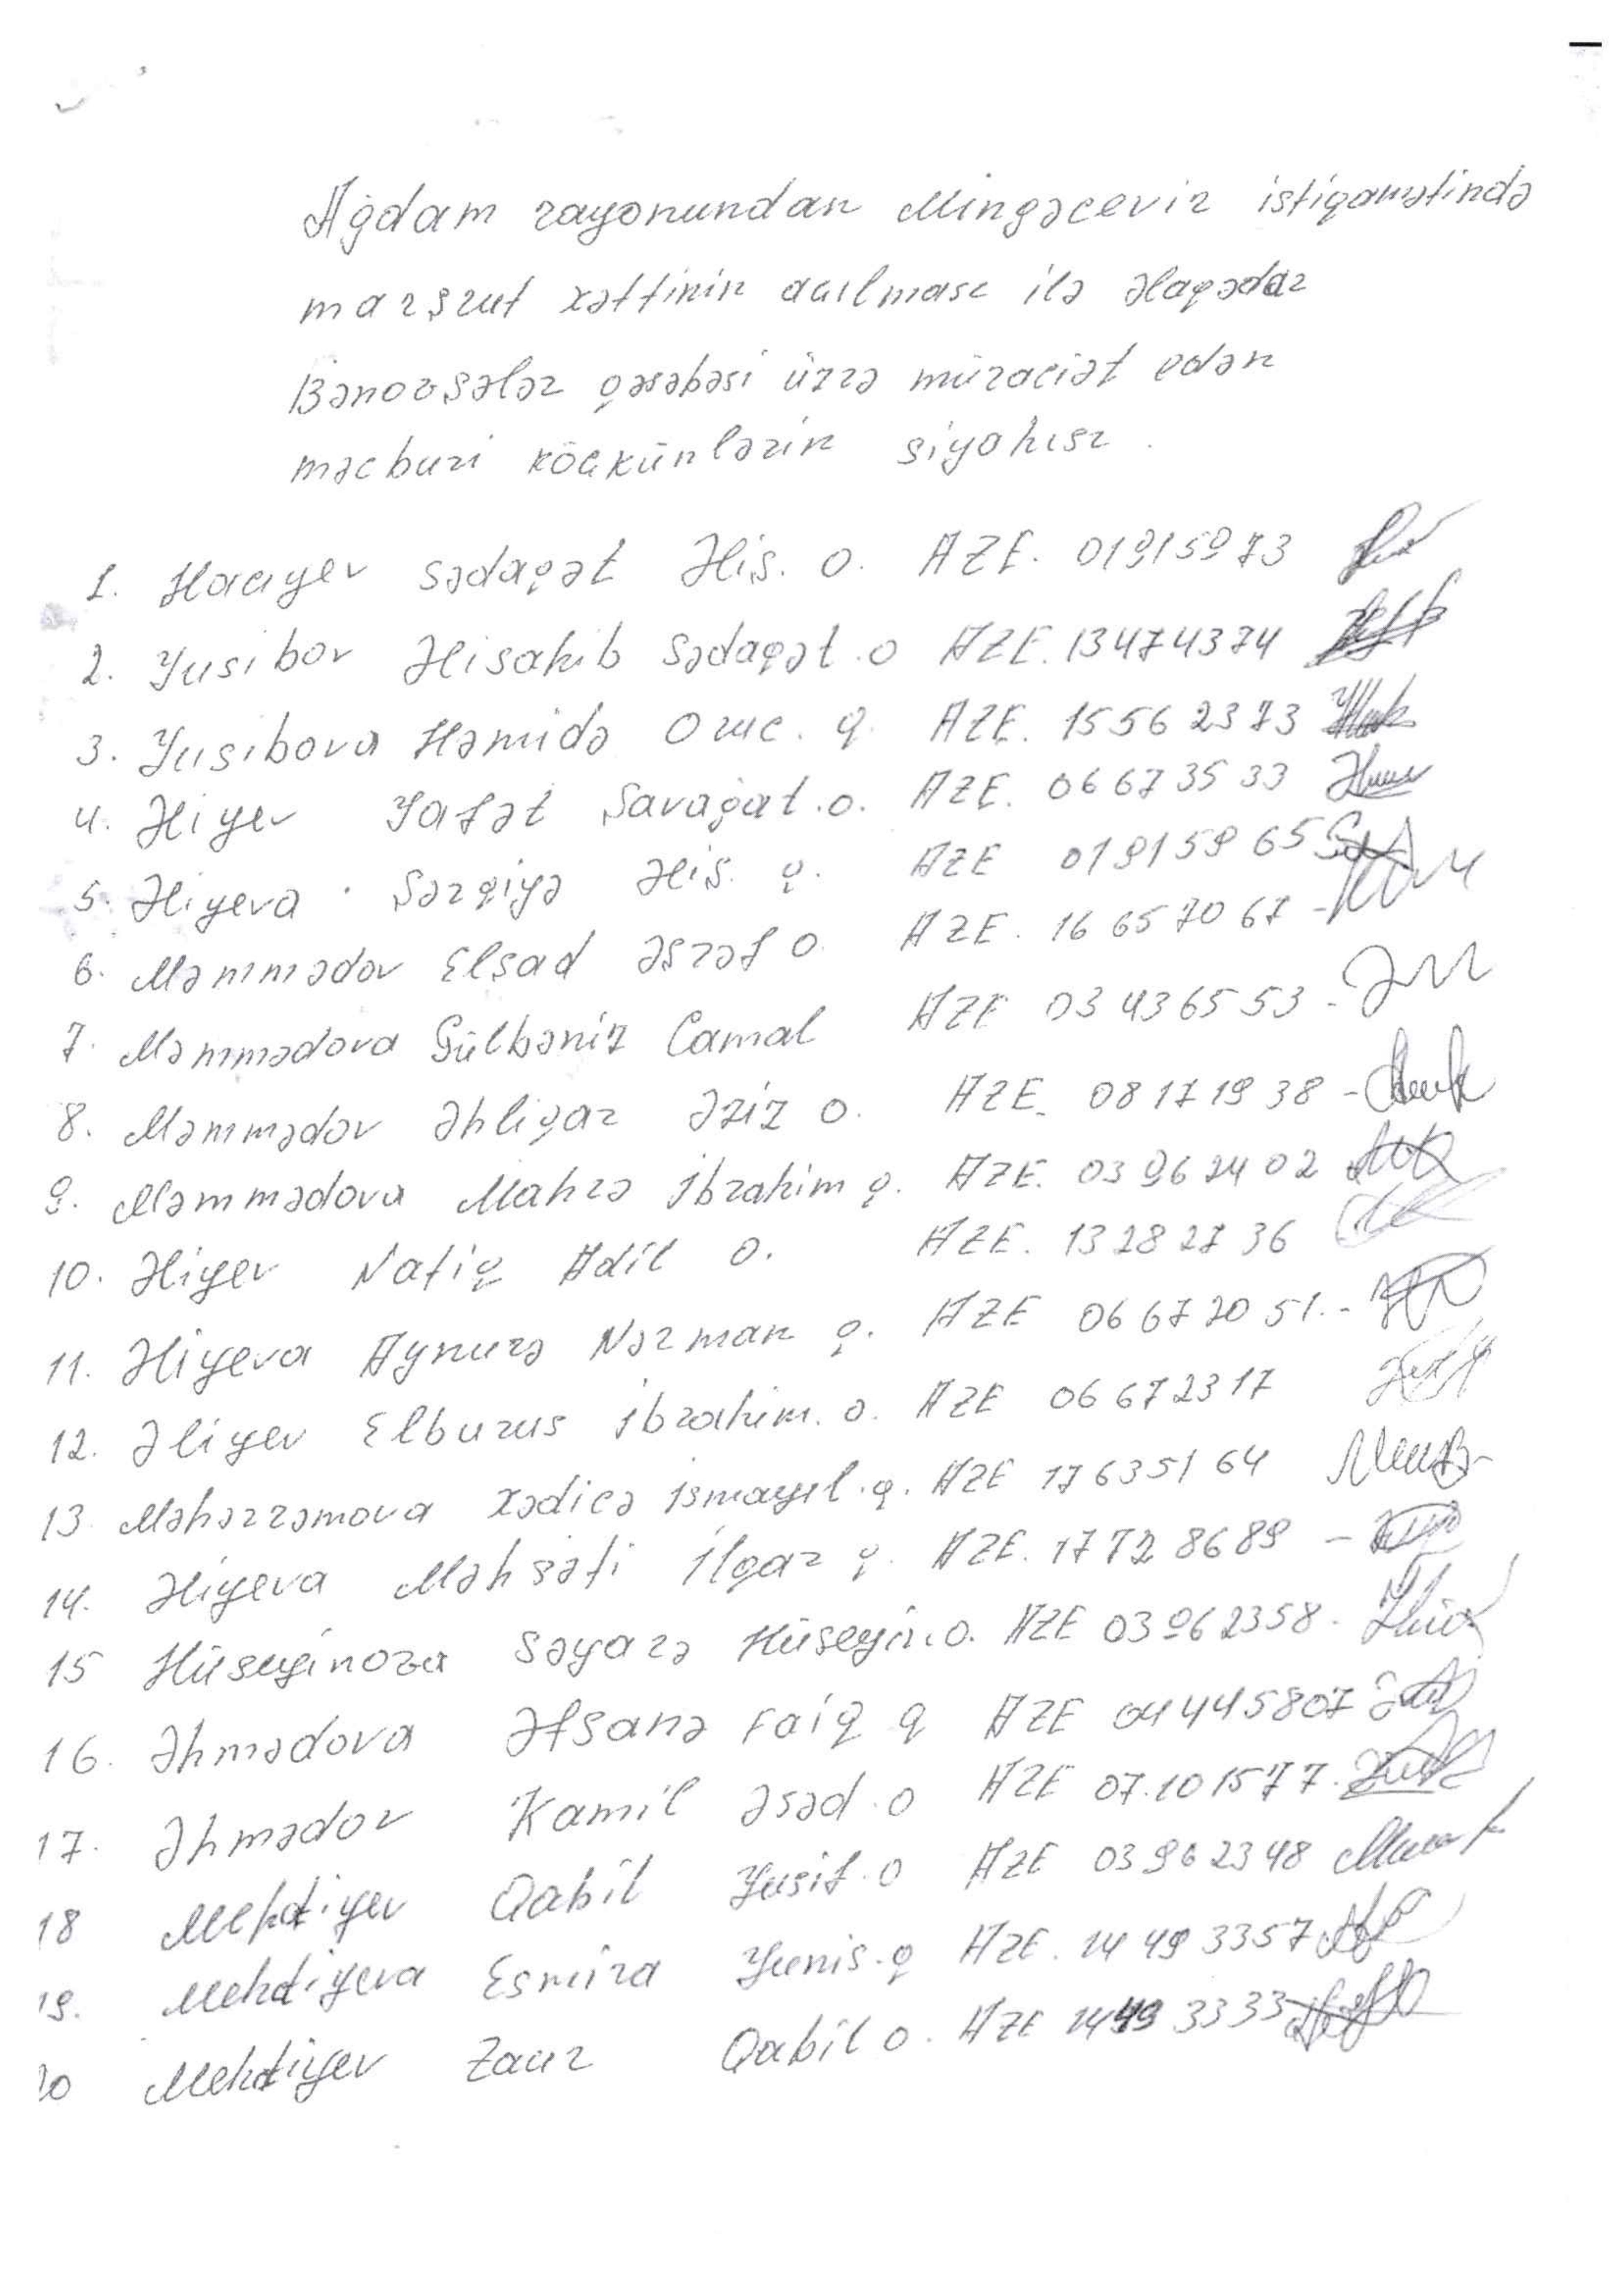 Ağdam rayonundan Mingəcevir istiqamətində
marşrut xəttinin acılması ilə əlaqədar
Bənovşələr qəsəbəsi üzrə müraciət edən
məcburi köckünlərin siyahısı.
1. Hacıyev Sədaqət Əliş. o. AZE. 01915973
2. Yusibov Əlisahib Sədaqət. o AZE. 13474374
3. Yusibova Həmidə Oruc. q. AZE. 15562373
4. Əliyev Yafət Şavağat. o. AZE. 06673533
5. Əliyeva Şərqiyə Əliş. q. AZE 01915965
6. Məmmədov Elşad Əşrəf o. AZE. 16657067
7. Məmmədova Gülbəniz Camal AZE 03436553
8. Məmmədov Əhliqar Əziz o. AZE. 08171938
9. Məmmədova Mahrə İbrahim q. AZE. 03962402
10. Əliyev Natiq Adil o. AZE. 13282736
11. Əliyeva Aynurə Nərman q. AZE 06672051.
12. Əliyev Elburus İbrahim. o. AZE 06672317
13. Məhərrəmova Xədicə İsmayıl. q. AZE 17635164
14. Əliyeva Məhsəti İlqar q. AZE. 17728689
15 Hüseyinova Səyarə Hüseyin. o. AZE 03962358
16. Əhmədova Əfsanə Faiq q AZE 04445807
17. Əhmədov Kamil Əsəd. o AZE 07.101577.
18 Mehdiyev Qabil Yusif. o AZE 03962348
19. Mehdiyeva Esmira Yunis. q AZE. 14493357
20 Mehdiyev Zaur Qabil o. AZE 14493333